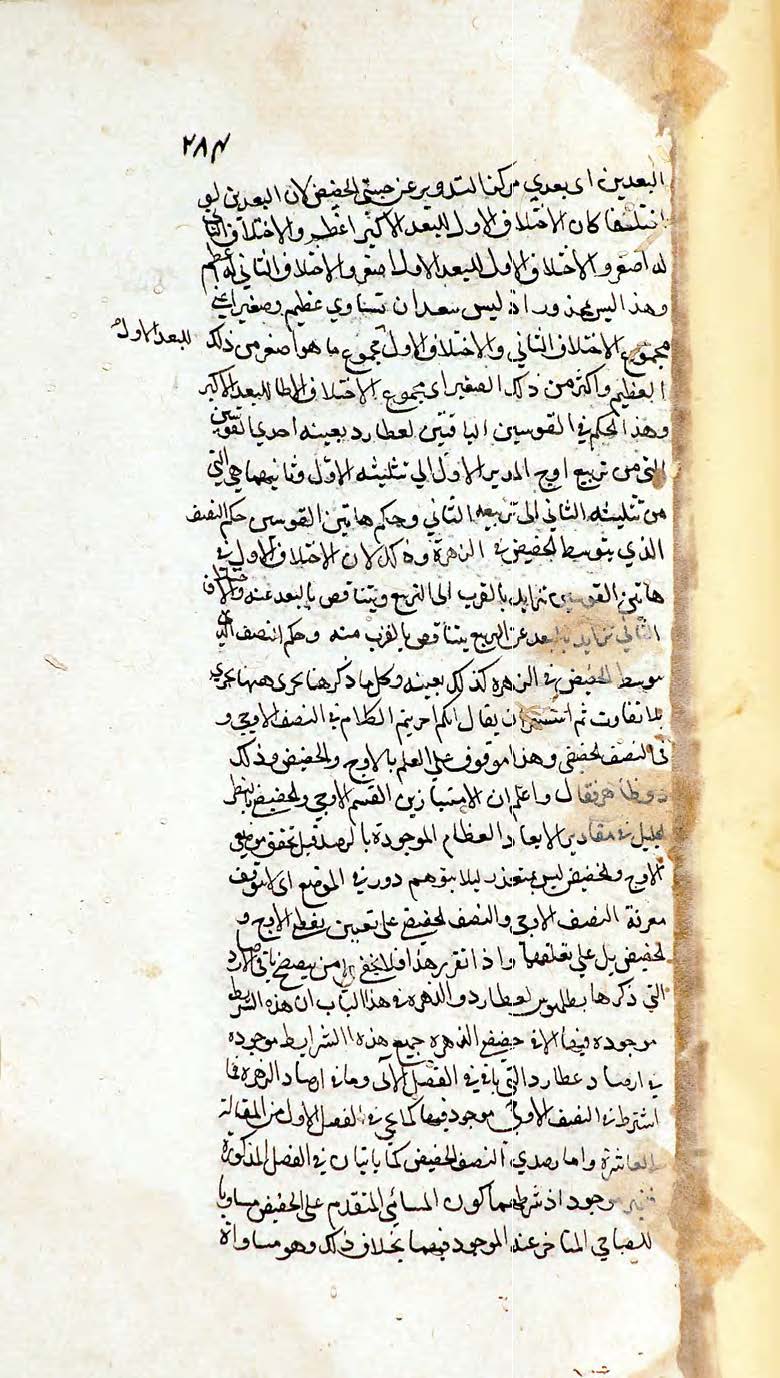 ٢٨٤
البعدين اى بعدي مركز التدوير عن جنبتي الحضيض لان البعدين لو
اختلفا كان الاختلاف الاول للبعد الاكبر اعظم والاختلاف الثاني
له اصغر والاختلاف الاول للبعد الاول اصغر والاختلاف الثاني له اعظم
وهذا ليس بمحذور اذ ليس ببعد ان تساوي عظيم وصغير اعني
مجموع الاختلاف الثاني والاختلاف الاول مجموع ما هو اصغر من ذلك للبعد الاول
العظيم واكثر من ذلك الصغير اى مجموع الاختلاف للبعد الاكبر
وهذا الحكم في القوسين الباقيتين لعطارد بعينه احدي القوسين
التي من تربيع اوج المدير الاول الي تثليثه الاول وثانيهما هي التي
من تثليثه الثاني الى تربيعه الثاني وحكم هاتين القوسين حكم النصف
الذي يتوسط الحضيض في الزهرة وذلك لان الاختلاف الاول في
هاتين القوسين تزايد بالقرب الى التربيع ويتناقص بالبعد عنه والاختلاف
الثاني تزايد بالبعد عن التربيع يتناقص بالقرب منه وحكم النصف الذي
يتوسط الحضيض في الزهرة كذلك بعينه وكل ما ذكرهنا يجرى ههنا
بلا تفاوت ثم ان يقال انكم اجريتم الكلام في النصف الاوجي و
في النصف الحضيضي وهذا موقوف علي العلم بالاوج والحضيض وذلك
دور ظاهر فقال واعلم ان الامتياز بين القسم الاوجي والحضيض بالنظر
الجليل في مقادير الابعاد العظام الموجودة بالرصد قبل تحقق موضعي
الاوج والحضيض ليس بمتعذر ليلا يتوهم دور في الموضع اى لا يتوقف
معرفة النصف الاوجي والنصف الحضيضي على تعيين نقطة الاوج و
الحضيض بل علي تعلقهما واذا تقرر هذا فلا يخفي من يتصفح باقي الارصاد
التي ذكرها بطلميوس لعطارد والزهرة في هذا الباب ان هذه الشرايط
موجوده فيها الا في حضيض الزهره جميع هذه الشرايط موجوده
في ارصاد عطارد التي ياتي في الفصل الآتي وما في ارصاد الزهره فما
اشترط في النصف الاوجي موجود فيها كما يجي في الفصل الاول من المقالة
العاشرة واما رصدي النصف الحضيض كما ياتيان في الفصل المذكورة
فغير موجود اذ شرطهما كون المسائي المتقدم على الحضيض مساويا
للصباحي المتاخر عنه والموجود فيهما بخلاف ذلك وهو مساواة